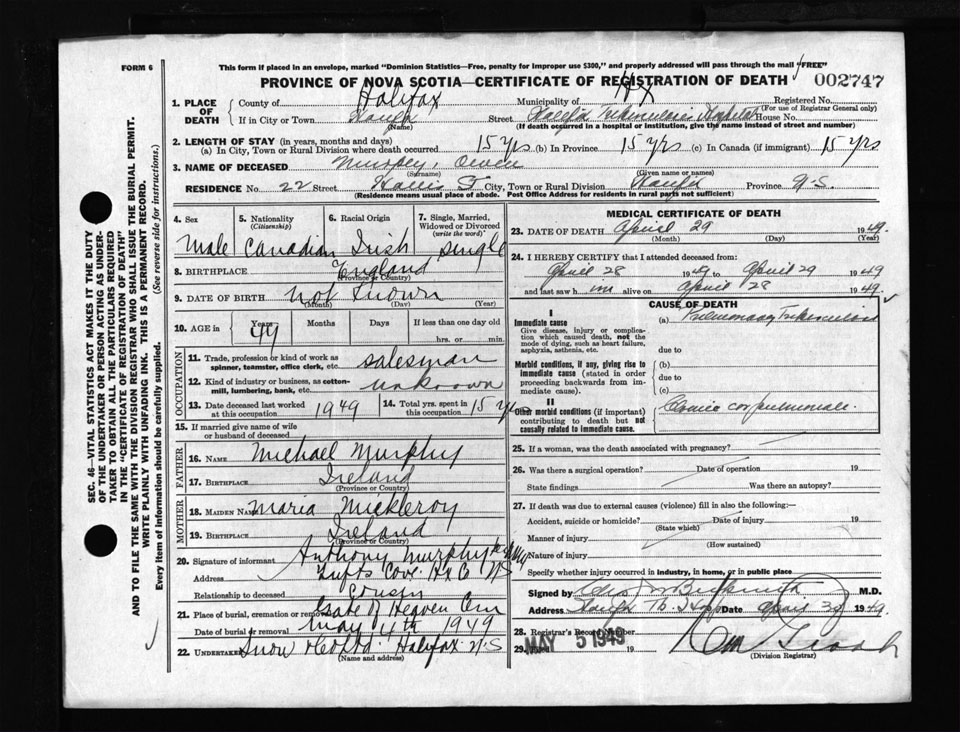 FORM 6
This form if placed in an envelope, marked "Dominion Statistics—Free," penalty for improper use $300," and properly addressed will pass through the mail "FREE"
PROVINCE OF NOVA SCOTIA—CERTIFICATE OF REGISTRATION OF DEATH
002747
1. PLACE OF DEATH
County of Halifax Municipality of Hx Registered No.
(For use of Registrar General only)
If in City or Town Street Halifax Tuberculosis Hospital House No.
(Name) (If death occurred in a hospital or institution, give the name instead of street and number)
2. LENGTH OF STAY (in years, months and days)
(a) In City, Town or Rural Division where death occurred 15 yrs (b) In Province 15 yrs (c) In Canada (if immigrant) 15 yrs
3. NAME OF DECEASED Murphy, Owen
(Surname) (Given name or names)
RESIDENCE No. 22 Street City, Town or Rural Division Halifax Province N.S.
(Residence means usual place of abode. Post Office Address for residents in rural parts not sufficient)
4. Sex
5. Nationality
(Citizenship)
6. Racial Origin
7. Single, Married, Widowed or Divorced
(write the word)
Male Canadian Irish single
8. BIRTHPLACE England
(Province or Country)
9. DATE OF BIRTH Not Known
(Month) (Day) (Year)
10. AGE in Years Months Days If less than one day
hrs. or min.
OCCUPATION
11. Trade, profession or kind of work as spinner, teamster, office clerk, etc. salesman
12. Kind of industry or business, as cotton-mill, lumbering, bank, etc. unknown
13. Date deceased last worked at this occupation 1949
14. Total yrs. spent in this occupation 15 yrs
15. If married give name of wife or husband of deceased
FATHER
16. Name Michael Murphy
17. Birthplace Ireland
(Province or Country)
MOTHER
18. Maiden Name Maria Mickleroy
19. Birthplace Ireland
(Province or Country)
20. Signature of informant Anthony Murphy
Address Tufts Cove Hx Co NS
Relationship to deceased Cousin
21. Place of burial, cremation or removal Gate of Heaven Cem
Date of burial or removal May 4th 1949
22. Undertaker Snow & Co Ltd Halifax N.S
(Name and address)
MEDICAL CERTIFICATE OF DEATH
23. DATE OF DEATH April 29 1949.
(Month) (Day) (Year)
24. I HEREBY CERTIFY that I attended deceased from:
April 28 1949 to April 29 1949
and last saw h im alive on April 28 1949.
CAUSE OF DEATH
I
Immediate cause
Give disease, injury or complication which caused death, not the mode of dying, such as heart failure, asphyxia, asthenia, etc.
(a) Pulmonary Tuberculosis
due to
Morbid conditions, if any, giving rise to immediate cause (stated in order proceeding backwards from immediate cause).
(b)
due to
(c)
II
Other morbid conditions (if important) contributing to death but not causally related to immediate cause.
Chronic cor pulmonale.
25. If a woman, was the death associated with pregnancy?
26. Was there a surgical operation? Date of operation 19
State findings Was there an autopsy?
27. If death was due to external causes (violence) fill in also the following:—
Accident, suicide or homicide? Date of injury 19
(State which)
Manner of injury
(How sustained)
Nature of injury
Specify whether injury occurred in industry, in home, or in public place
Signed by M.D.
Address Halifax Tb. Hosp Date April 30 1949.
28. Registrar's Record Number
29. Filed 19
MAY 5 1949
(Division Registrar)
SEC. 46—VITAL STATISTICS ACT MAKES IT THE DUTY
OF THE UNDERTAKER OR PERSON ACTING AS UNDER-
TAKER TO OBTAIN ALL THE PARTICULARS REQUIRED
IN THE "CERTIFICATE OF REGISTRATION OF DEATH"
AND TO FILE THE SAME WITH THE DIVISION REGISTRAR WHO SHALL ISSUE THE BURIAL PERMIT.
WRITE PLAINLY WITH UNFADING INK. THIS IS A PERMANENT RECORD.
Every item of information should be carefully supplied. (See reverse side for instructions.)